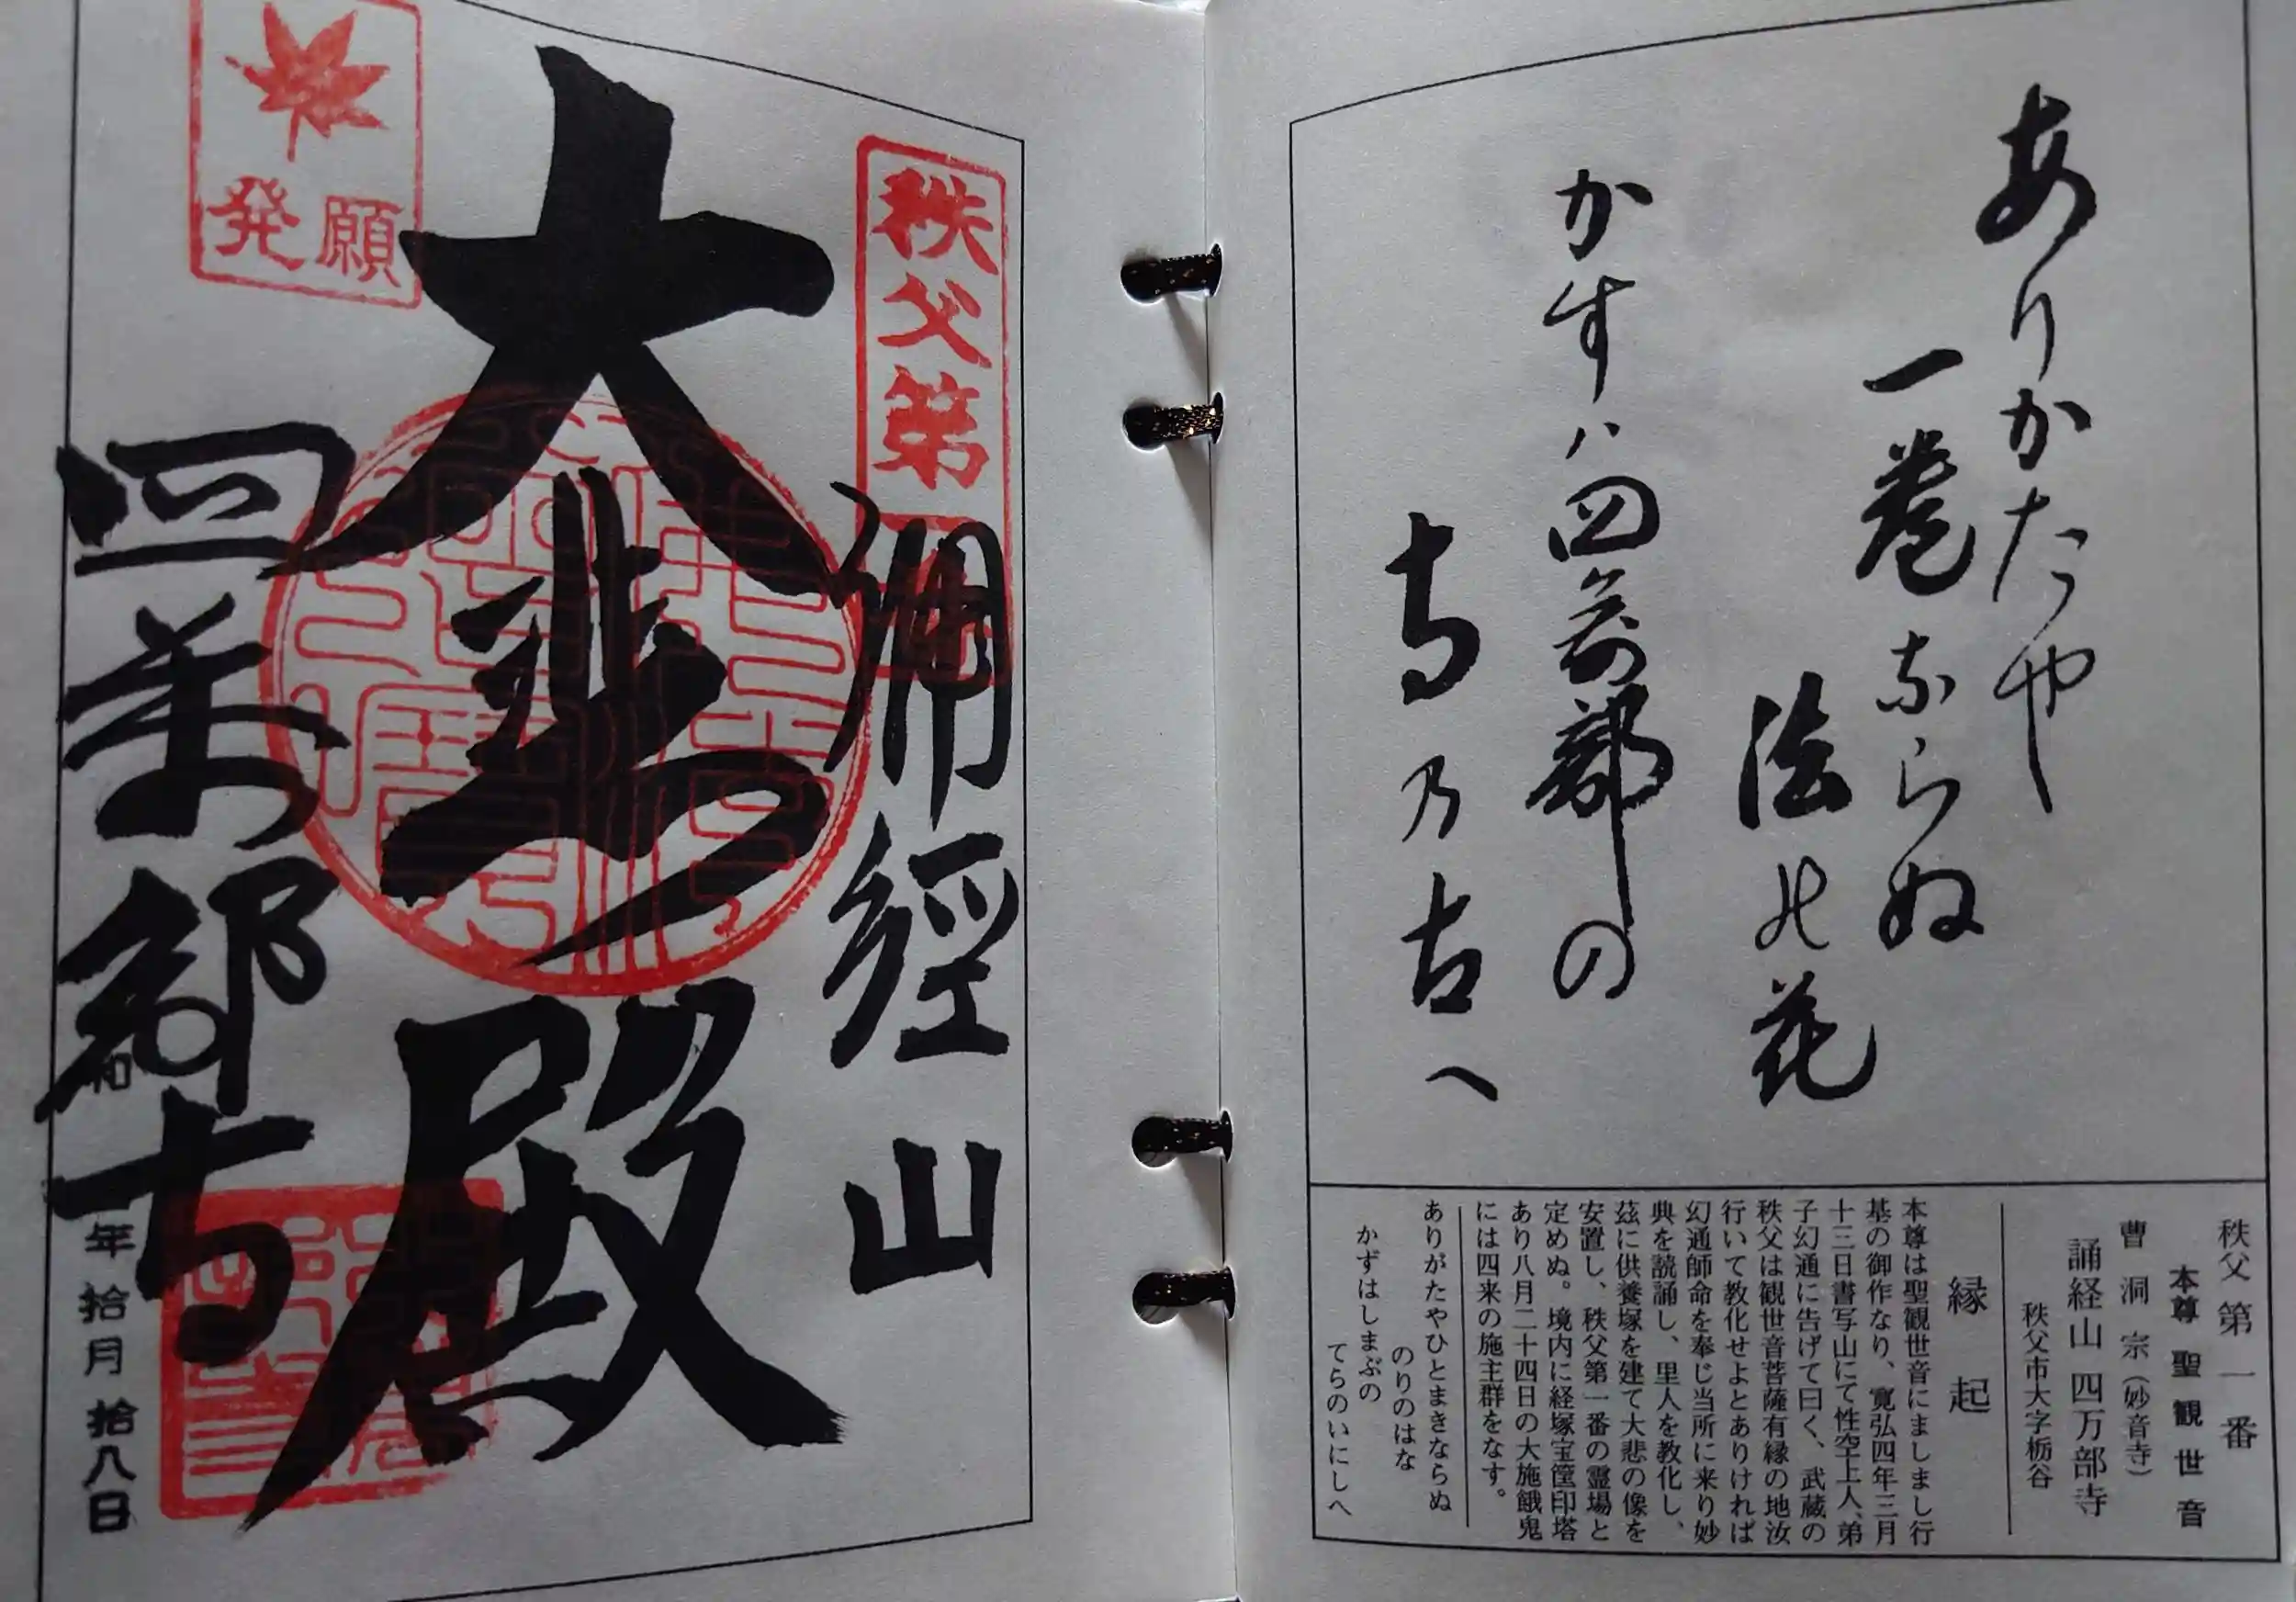 ありかたや
一巻ならぬ
法の花
かすハ四萬部の
寺乃古へ
秩父第一番
本尊 聖観世音
曹洞宗(妙音寺)
誦経山 四万部寺
秩父市大字栃谷
縁起
本尊は聖観世音にましまし行
基の御作なり、寛弘四年三月
十三日書写山にて性空上人、弟
子幻通に告げて曰く、武蔵の
秩父は観世音菩薩有縁の地汝
行いて教化せよとありければ
幻通師命を奉じ当所に来り妙
典を読誦し、里人を教化し、
茲に供養塚を建て大悲の像を
安置し、秩父第一番の霊場と
定めぬ。境内に経塚宝篋印塔
あり八月二十四日の大施餓鬼
には四来の施主群をなす。
ありがたやひとまきならぬ
のりのはな
かずはしまぶの
てらのいにしへ
秩父第一
誦經山
大悲殿
発願
四萬部寺
和 年拾月拾八日